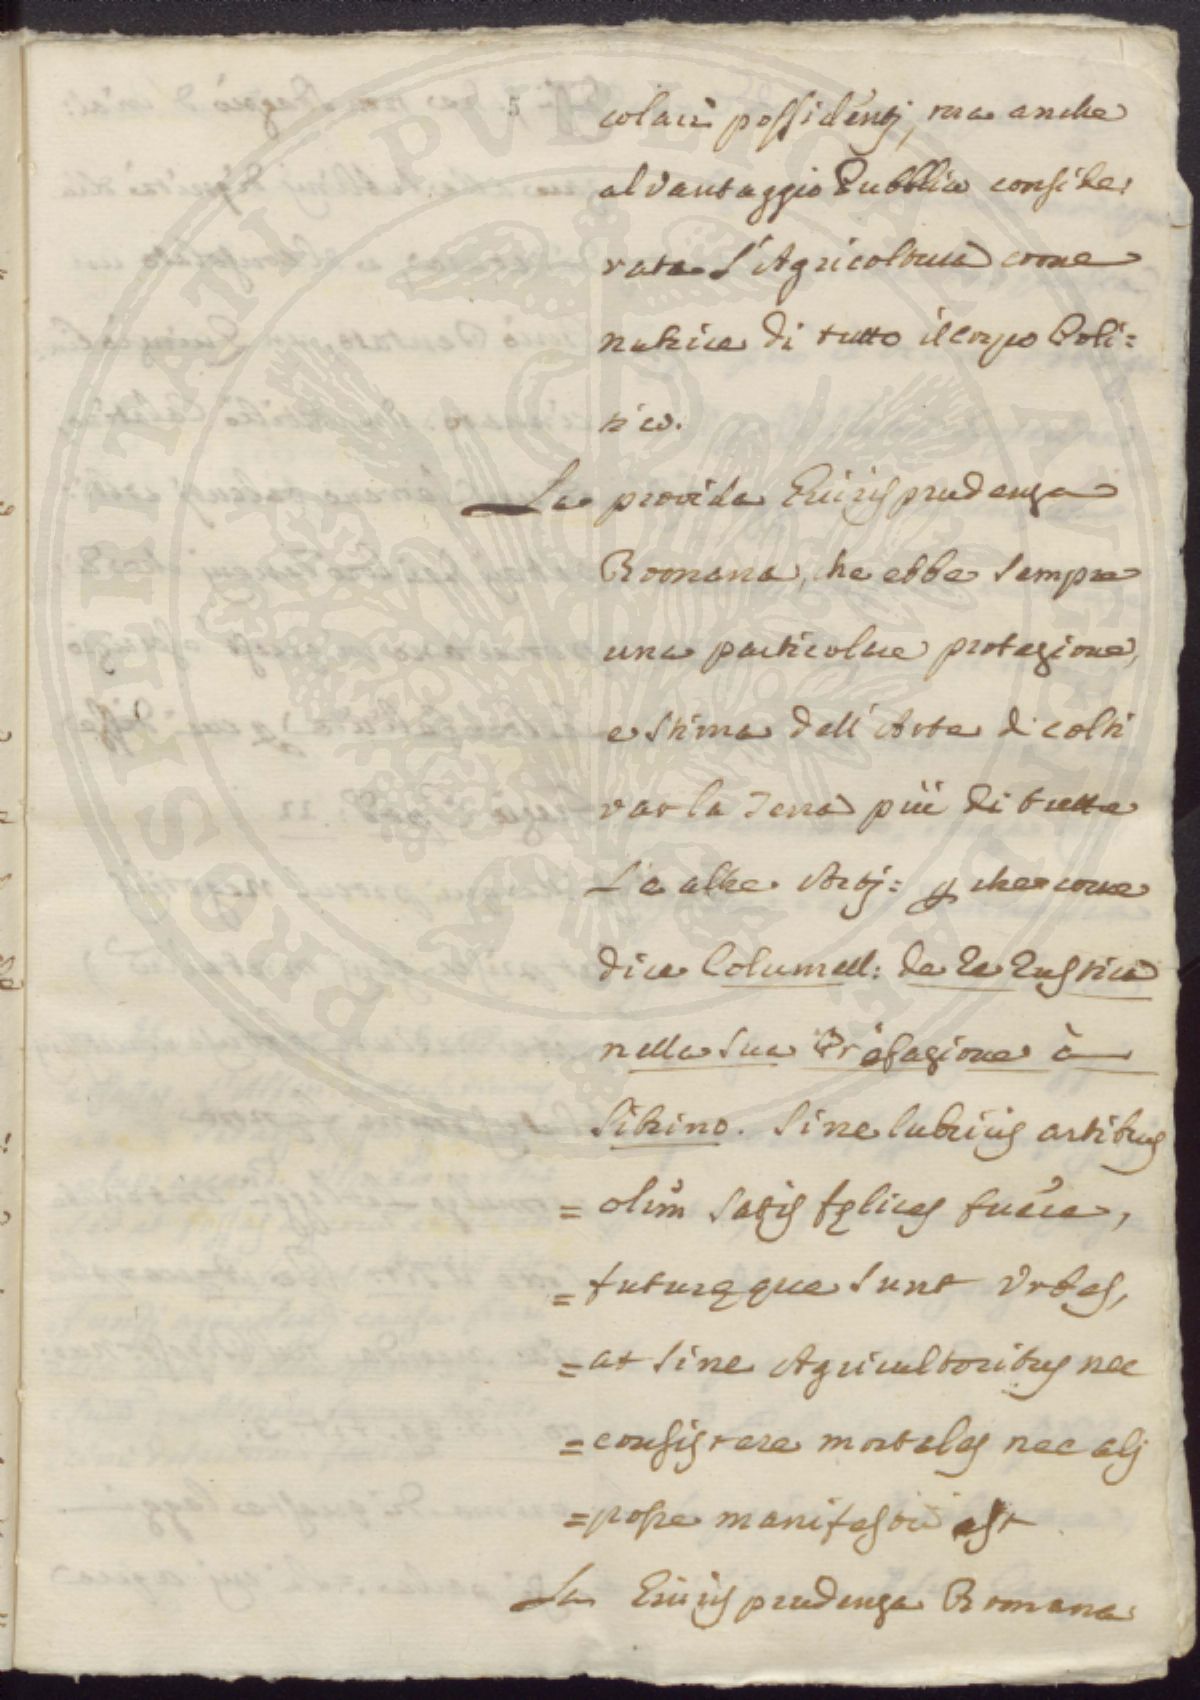 5
colari possidenti, ma anche
al vantaggio Pubblico conside:
rata l'Agricoltura come
nutrice di tutto il corpo Poli=
tico.
La provida Giurisprudenza
Romana, che ebbe sempre
una particolare protezione,
e stima dell'Arte di colti
var la Terra più di tutte
Le altre Arti: perche come
dice Columell: de Re Rustica
nella sua Prefazione à
Silvino. Sine ludicris artibus
= olim satis felices fuere,
= futuræque sunt Urbes,
= at sine Agricultoribus nec
= consistere mortales nec ali
= posse manifestum est
La Giurisprudenza Romana
PROSPERITATI PVBLICAE AVGENDAE